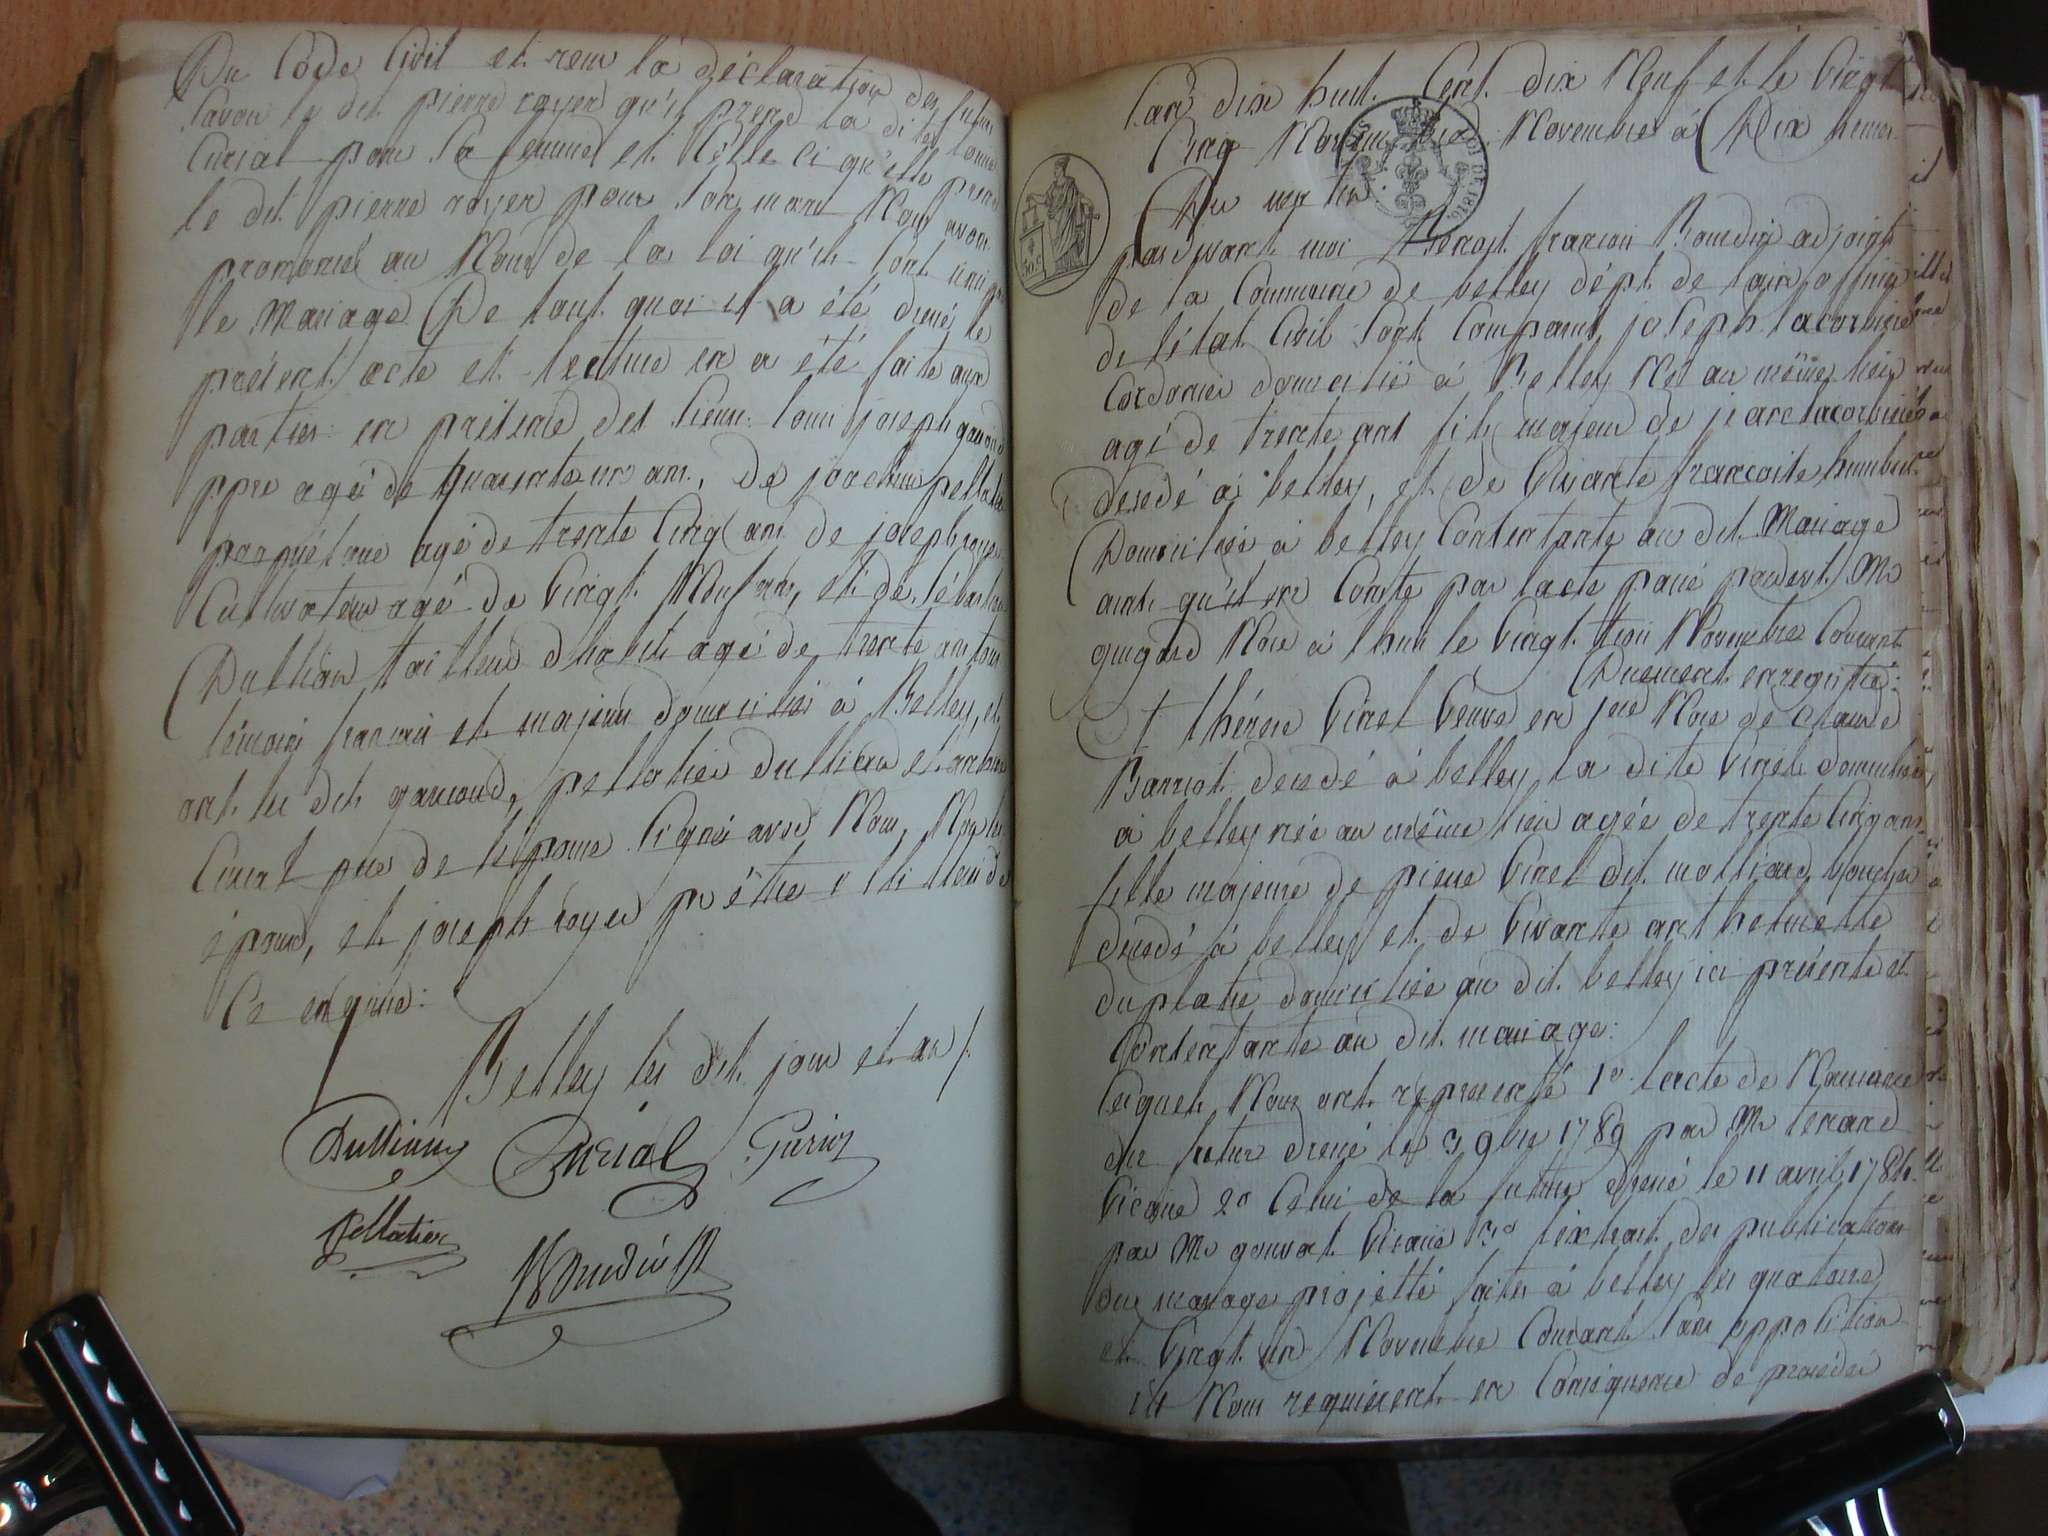 Du Code Civil et reçu la déclaration des futurs
Savoir le dit pierre royer qu'il prend la dite
Curial pour Sa femme et Celle ci qu'elle prend
le dit pierre royer pour Son mari Nous avons
prononcé au Nom de la loi qu'ils Sont unis par
le Mariage De tout quoi il a été dressé le
présent acte et lecture en a été faite aux
parties en présence des Sieurs louis joseph
ppre agé de quarante un ans, de joachim pellatier
propriétaire agé de trente Cinq ans de joseph royer
Cultivateur agé de Vingt Neuf ans, et de Sébastien
Dullion tailleur d'habits agé de trente ans tous
témoins français et majeurs domiciliés à Belley, et
ont les dits pellatier dullion et
Curial père de l'épouse Signé avec Nous, Non les
époux, et joseph royer pour être illitérés de
Ce enquis:
Belley les dits jour et an /.
Curial
Pellatier
l'an dix huit Cent dix Neuf et le Vingt
Cinq Novembre à Dix heures
Du matin
30 c.
pardevant moi Benoit françois Boudin adjoint
de la Commune de belley dépt. de l'ain officier
de l'état Civil Sont Comparus joseph
Cordonier domicilié à Belley Né au même lieu
agé de trente ans fils majeur de jean
décédé à belley, et de Vivante francoise humbert
Domiciliée à belley Consentante au dit Mariage
ainsi qu'il en Conste par l'acte passé pardevt. Me
guigard Nore à lhuis le Vingt trois Novembre Courant
Duement enregistré:
Et thérèse Vinet Veuve en 1res Noces de Claude
Barriot décédé à belley la dite Vinet domiciliée
à belley née au même lieu agée de trente Cinq ans
fille majeure de pierre Vinet dit molliard boucher
décédé à belley et de Vivante anthelmette
duplatre domiciliée au dit belley ici présente et
Consentante au dit mariage:
lesquels Nous ont représenté 1º l'acte de Naissance
du futur dressé le 3 9bre 1789 par Mr
Vicaire 2º Celui de la future dressé le 11 avril 1784
par Mr gouvat Vicaire 3º l'extrait des publications
du mariage projetté faites à belley les quatorze
et Vingt un Novembre Courant Sans opposition
ils Nous requièrent en Conséquence de procéder